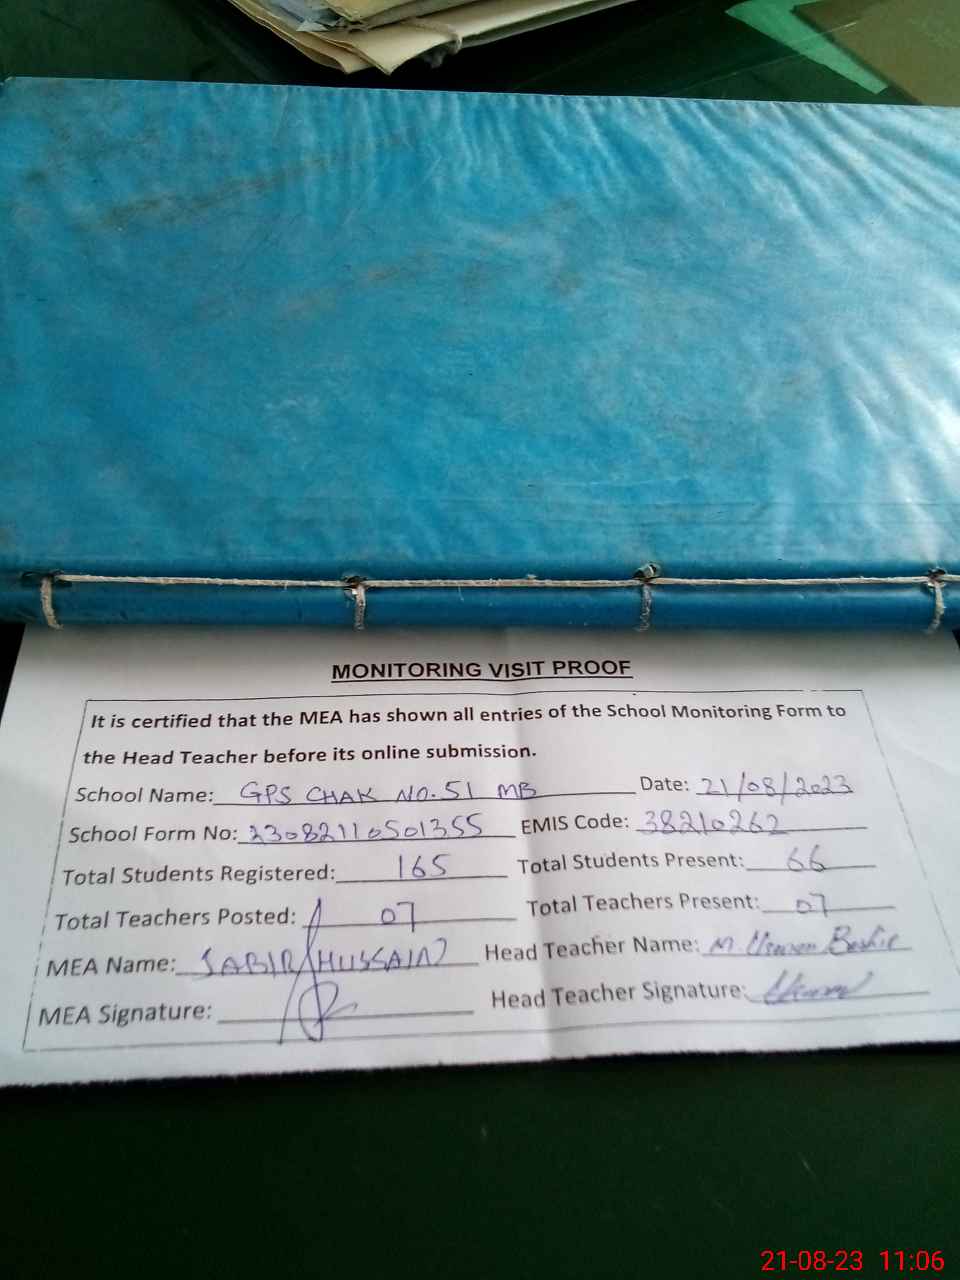 MONITORING VISIT PROOF
It is certified that the MEA has shown all entries of the School Monitoring Form to
the Head Teacher before its online submission.
School Name: GPS CHAK NO. 51 MB Date: 21/08/2023
School Form No: 23082110501355 EMIS Code: 38210262
Total Students Registered: 165 Total Students Present: 66
Total Teachers Posted: 07 Total Teachers Present: 07
MEA Name: SABIR HUSSAIN Head Teacher Name: M.
MEA Signature: Head Teacher Signature:
21-08-23 11:06